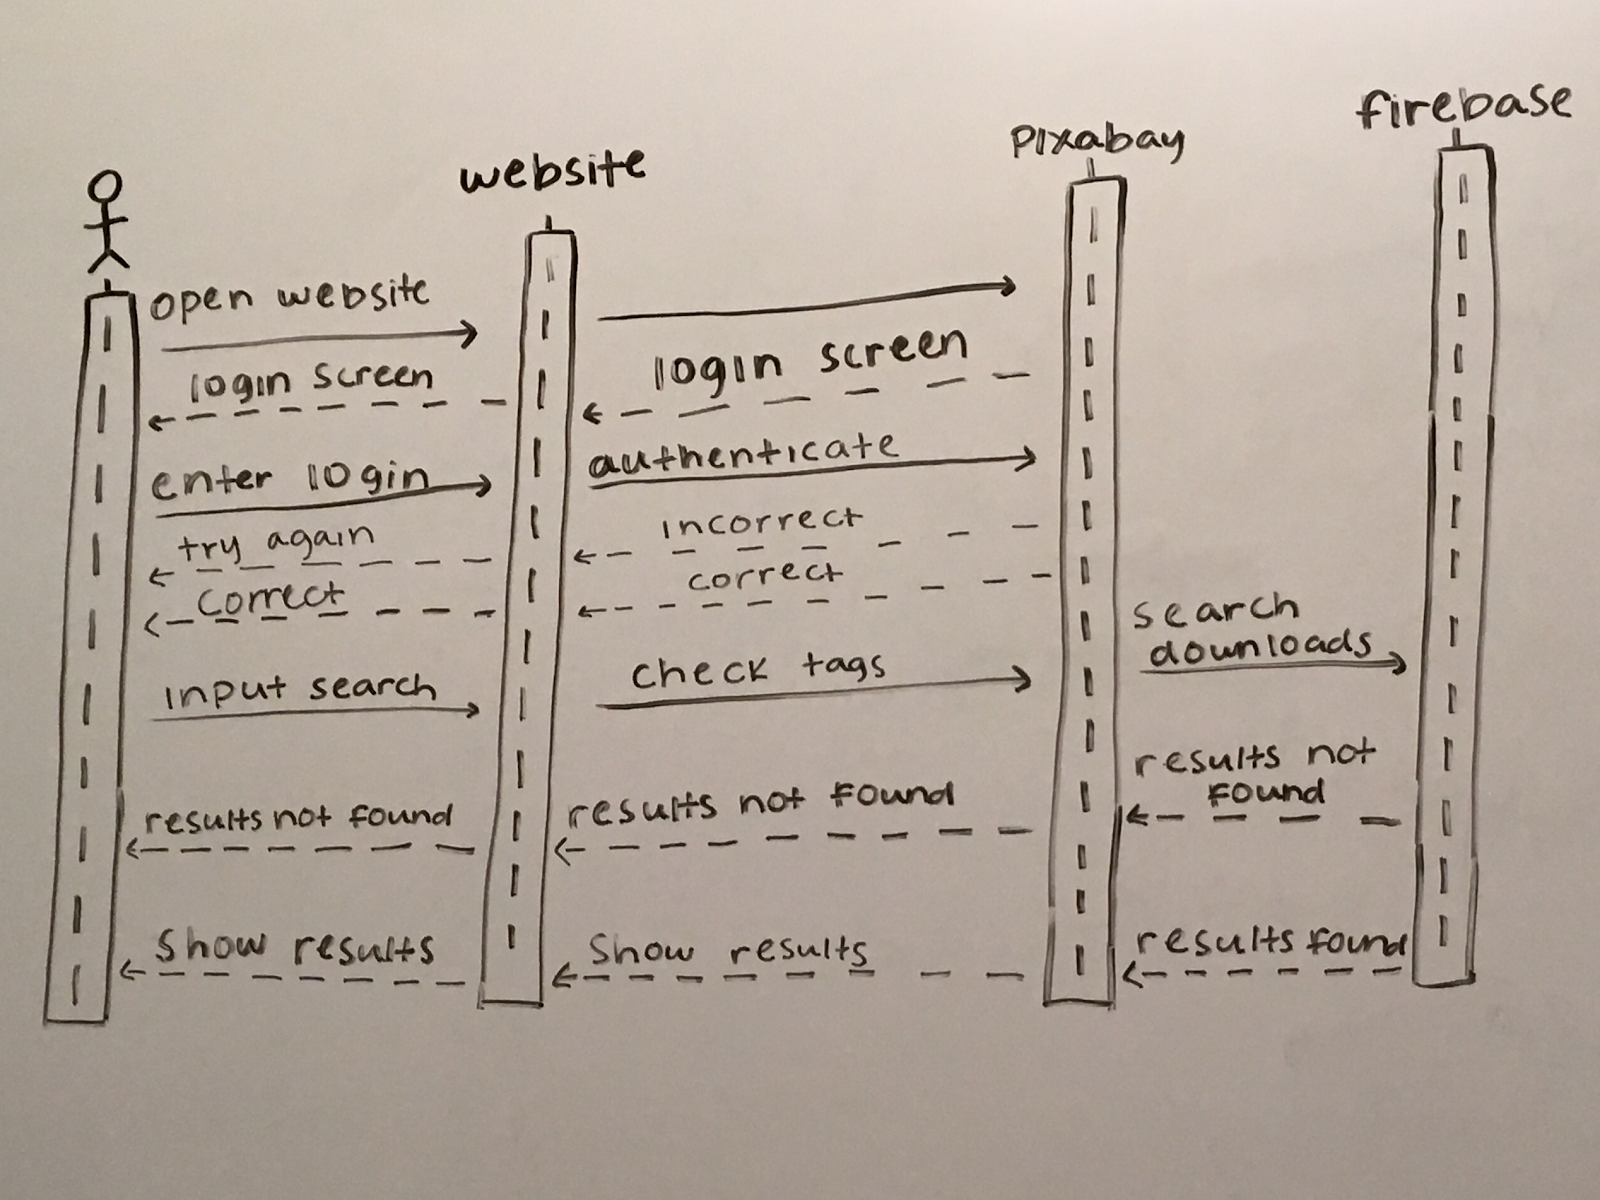 website
pixabay
firebase
open website
login screen
login screen
enter login
authenticate
try again
incorrect
correct
correct
input search
check tags
search
downloads
results not found
results not found
results not
found
show results
show results
results found